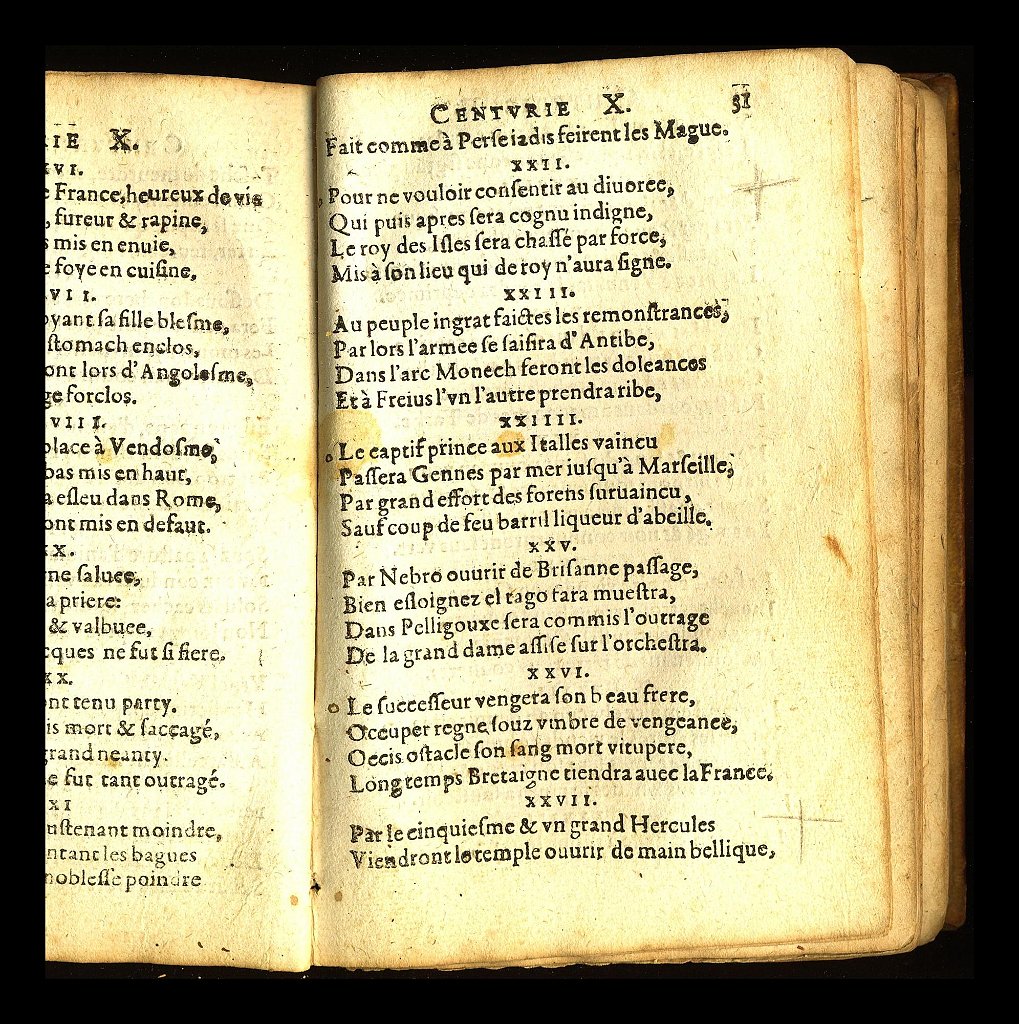 RIE X.
XVI.
e France, heureux de vie
, fureur & rapine,
s mis en enuie,
e foye en cuiſine,
VII.
oyant ſa fille bleſme,
ſtomach enclos,
ont lors d'Angoleſme,
ge forclos.
VIII.
place à Vendoſme,
bas mis en haut,
a eſleu dans Rome,
ont mis en defaut.
XX.
ne ſaluee,
a priere:
& valbuee,
cques ne fut ſi fiere.
XX.
ont tenu party.
is mort & ſaccagé,
grand neanty.
e fut tant outragé.
XXI
uſtenant moindre,
ntant les bagues
nobleſſe poindre
CENTVRIE X. 31
Fait comme à Perſe iadis feirent les Mague.
XXII.
Pour ne vouloir conſentir au diuorce,
Qui puis apres ſera cognu indigne,
Le roy des Iſles ſera chaſſé par force,
Mis à ſon lieu qui de roy n'aura ſigne.
XXIII.
Au peuple ingrat faictes les remonſtrances,
Par lors l'armee ſe ſaiſira d'Antibe,
Dans l'arc Monech feront les doleances
Et à Freius l'vn l'autre prendra ribe,
XXIIII.
Le captif prince aux Italles vaincu
Paſſera Gennes par mer iuſqu'à Marſeille,
Par grand effort des forens ſuruaincu,
Sauf coup de feu barril liqueur d'abeille.
XXV.
Par Nebro ouurir de Briſanne paſſage,
Bien eſloignez el tago fara mueſtra,
Dans Pelligouxe ſera commis l'outrage
De la grand dame aſſiſe ſur l'orcheſtra.
XXVI.
Le ſucceſſeur vengera ſon beau frere,
Occuper regne ſouz vmbre de vengeance,
Occis oſtacle ſon ſang mort vitupere,
Long temps Bretaigne tiendra auec la France.
XXVII.
Par le cinquieſme & vn grand Hercules
Viendront le temple ouurir de main bellique,